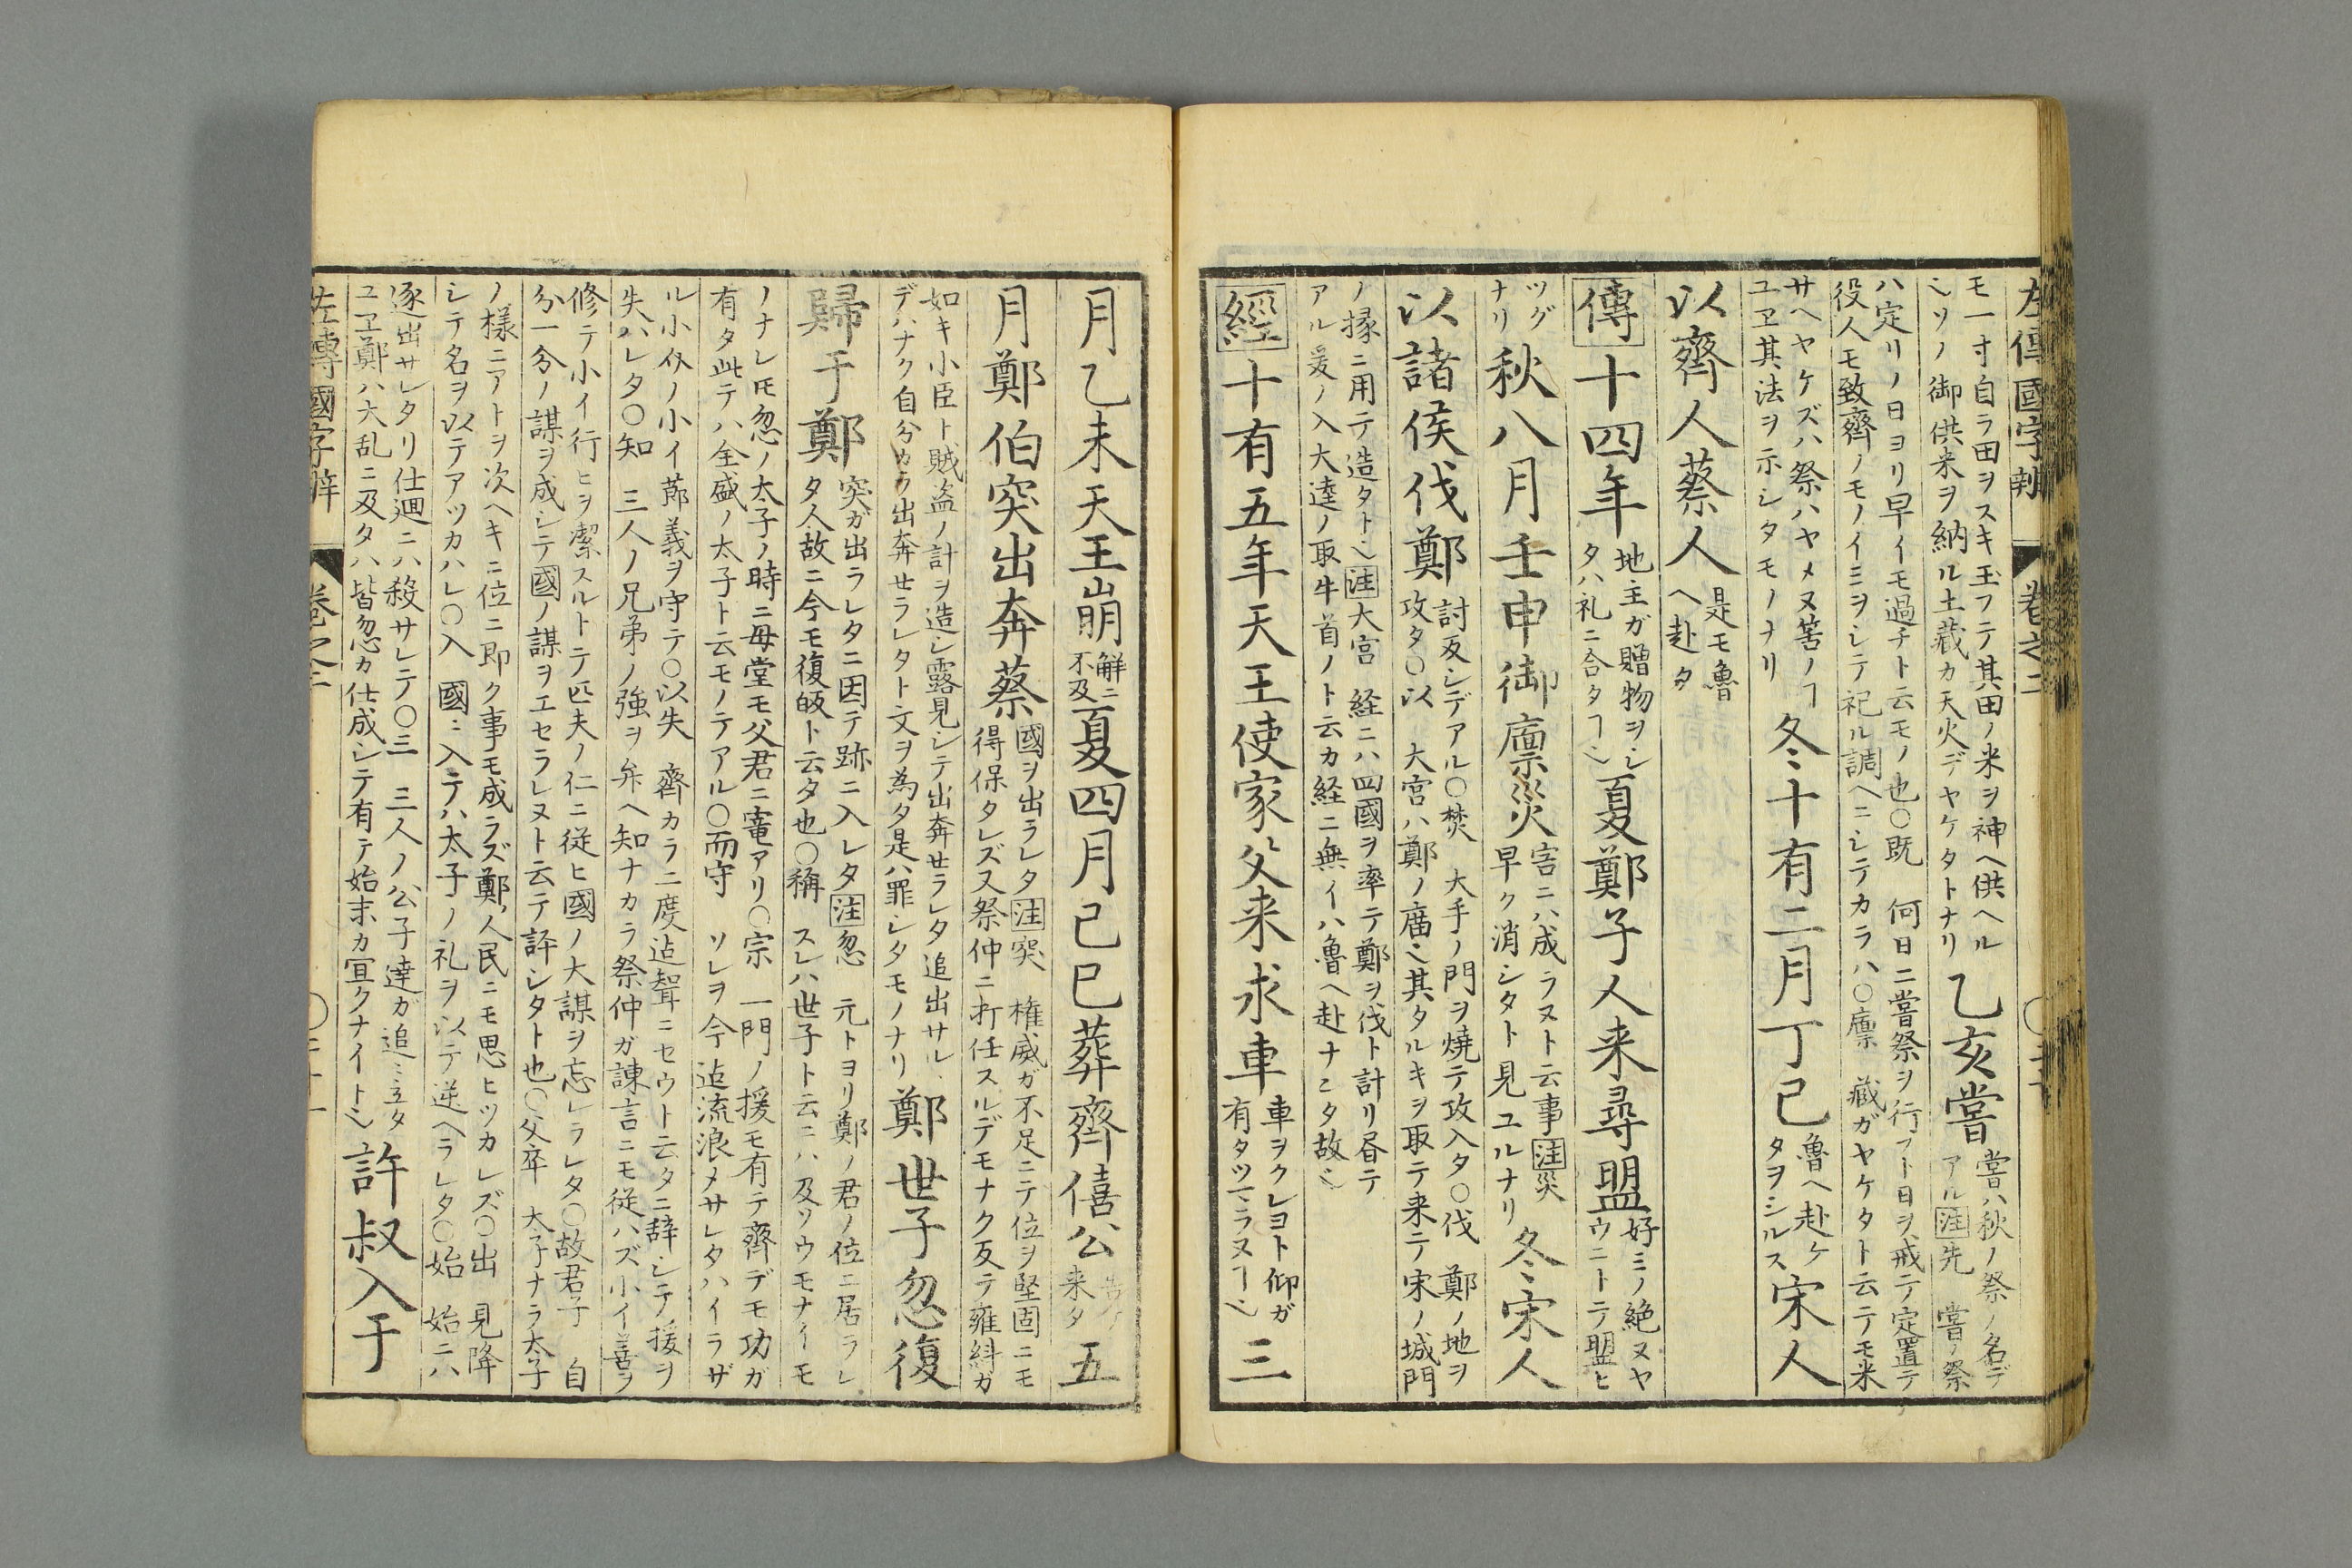 左傳國字辨 卷之二
モ一寸自ラ田ヲスキ玉フテ其田ノ米ヲ神ヘ供ヘル
シソノ御供米ヲ納ル土藏カ天火デヤケタトナリ
乙亥嘗
嘗ハ秋ノ祭ノ名デ
アル注先 嘗ノ祭
ハ定リノ日ヨリ早イモ過チト云モノ也〇既 何日ニ嘗祭ヲ行フト日ヲ戒テ定置テ
役人モ致齊ノモノイミヲシテ祀ル調ヘニシテカラハ〇廪 藏ガヤケタト云テモ米
サヘヤケズハ祭ハヤメヌ筈ノヿ
ユヱ其法ヲ示シタモノナリ
冬十有二月丁已
魯ヘ赴ケ
タヲシルス
宋人
以齊人蔡人
是モ魯
ヘ赴タ
傳十四年
地主ガ贈物ヲシ
タハ礼ニ合タヿシ
夏鄭子人来尋盟
好ミノ絶ヌヤ
ウニトテ盟ヒ
ツグ
ナリ
秋八月壬申御廪災
害ニハ成ラヌト云事注災
早ク消シタト見ユルナリ
冬宋人
以諸侯伐鄭
討反シデアル〇焚 大手ノ門ヲ焼テ攻入タ〇伐 鄭ノ地ヲ
攻タ〇以 大宮ハ鄭ノ廟シ其タルキヲ取テ来テ宋ノ城門
ノ椽ニ用テ造タトシ注大宮 経ニハ四國ヲ率テ鄭ヲ伐ト計リ昏テ
アル爰ノ入大逵ノ取牛首ノト云カ経ニ無イハ魯ヘ赴ナンタ故シ
經十有五年天王使家父来求車
車ヲクレヨト仰ガ
有タツマラヌヿシ
三
月乙未天王崩
解ニ
不及
夏四月己巳葬齊僖公
告ケ
来タ
五
月鄭伯突出奔蔡
國ヲ出ラレタ注突 権威ガ不足ニテ位ヲ堅固ニモ
得保タレズ又祭仲ニ打任スルデモナク反テ雍糾ガ
如キ小臣ト賊盗ノ計ヲ造シ露見シテ出奔せラレタ追出サル
デハナク自分カラ出奔せラレタト文ヲ為タ是ハ罪シタモノナリ
鄭世子忽復
歸于鄭
突ガ出ラレタニ因テ跡ニ入レタ注忽 元トヨリ鄭ノ君ノ位ニ居ラレ
タ人故ニ今モ復皈ト云タ也〇稱 スレハ世子ト云ニハ及ソウモナイモ
ノナレ𪜈忽ノ太子ノ時ニ母堂モ父君ニ寵アリ〇宗 一門ノ援モ有テ齊デモ功ガ
有タ此テハ全盛ノ太子ト云モノテアル〇而守 ソレヲ今迠流浪メサレタハイラザ
ル小分ノ小イ莭義ヲ守テ〇以失 齊カラ二度迠聟ニセウト云タニ辞シテ援ヲ
失ハレタ〇知 三人ノ兄弟ノ強ヲ弁ヘ知ナカラ祭仲ガ諌言ニモ従ハズ小イ善ヲ
修テ小イ行ヒヲ潔スルトテ匹夫ノ仁ニ従ヒ國ノ大謀ヲ忘レラレタ〇故君子 自
分一分ノ謀ヲ成シテ國ノ謀ヲエセラレヌト云テ許シタト也〇父卒 太子ナラ太子
ノ様ニアトヲ次ヘキニ位ニ即ク事モ成ラズ鄭ノ人民ニモ思ヒツカレズ〇出 見降
シテ名ヲ以テアツカハレ〇入 國ニ入テハ太子ノ礼ヲ以テ逆ヘラレタ〇始 始ニハ
逐出サレタリ仕廻ニハ殺サレテ〇三 三人ノ公子達ガ追ニ立タ
ユヱ鄭ハ大乱ニ及タハ皆忽カ仕成シテ有テ始末カ宜クナイトシ
許叔入于
左傳國字辨 卷之二